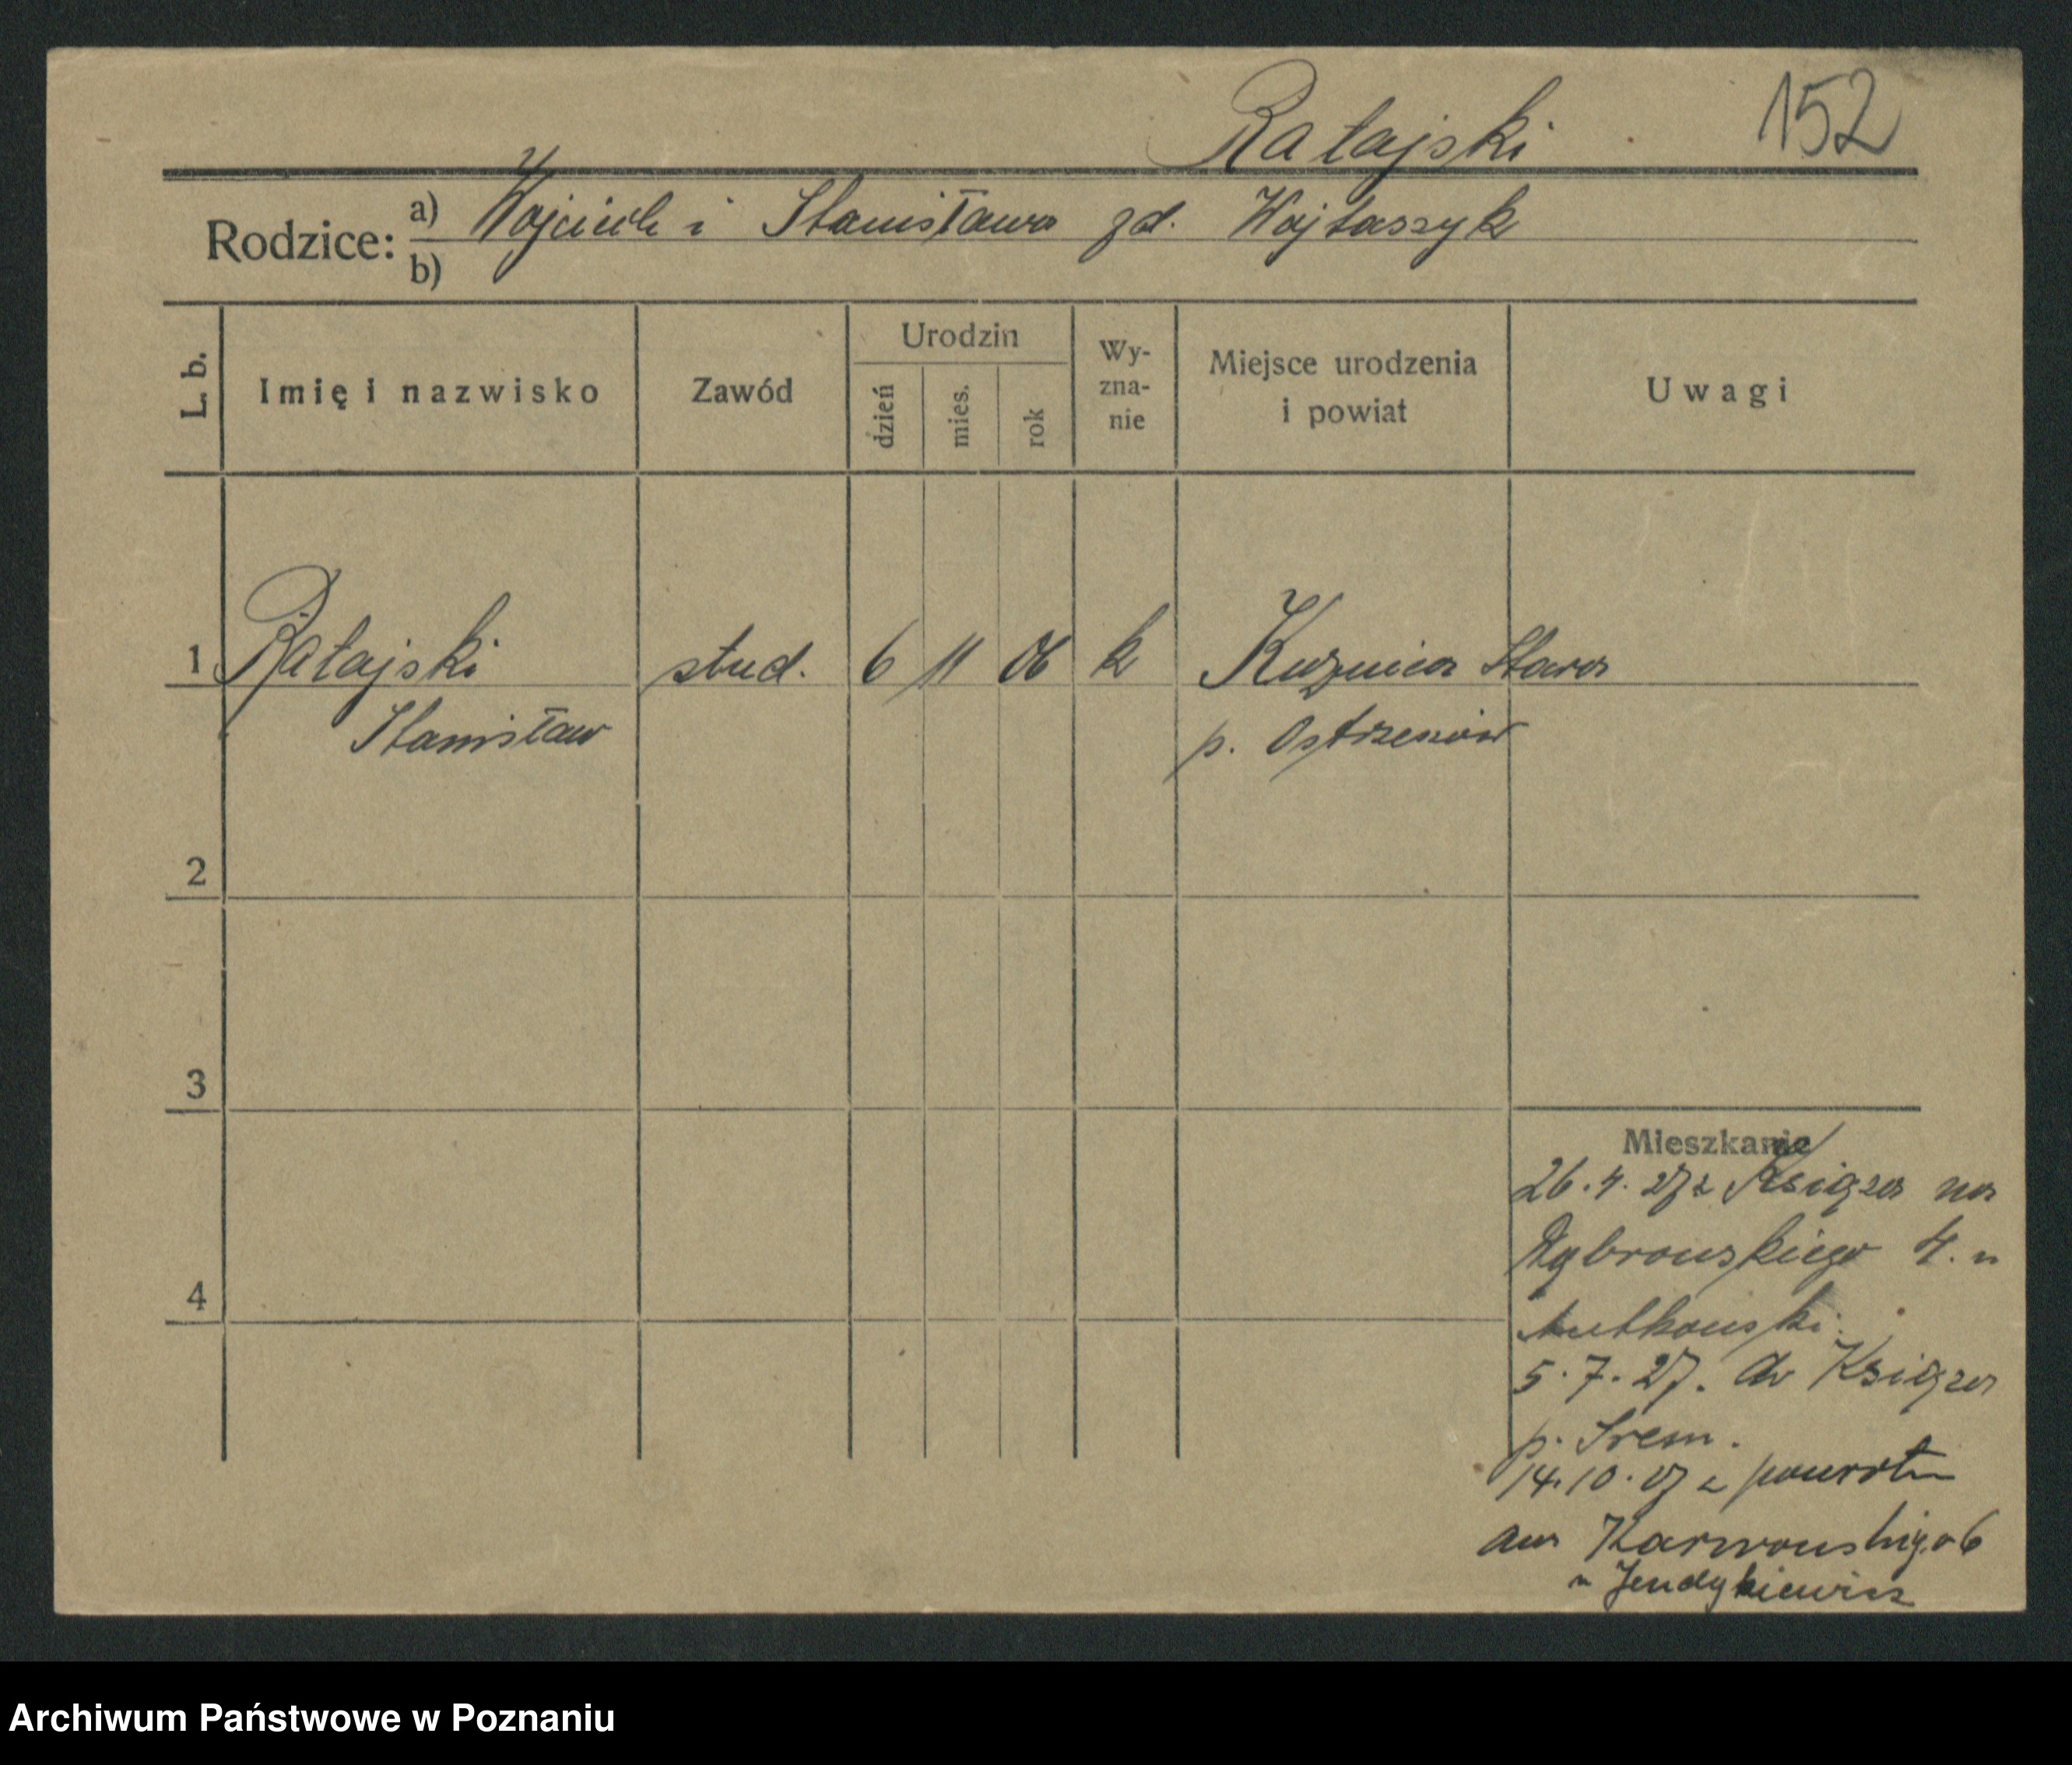 Ratajski 152
Rodzice: a) Wojciech i Stanisława zd. Wojtaszyk
b)
L. b. Imię i nazwisko Zawód Urodzin dzień mies. rok Wy-zna-nie Miejsce urodzenia i powiat Uwagi
1 Ratajski stud. 6 11 06 k Kuźnica Stara
Stanisław p. Ostrzeszów
2
3
Mieszkanie
26.4.27 z Książa na
Dąbrowskiego 4. u
4
5.7.27. do Książa
p. Śrem.
14.10.27 z powrotem
Karwowskiego 6
u Jendykiewicz
Archiwum Państwowe w Poznaniu